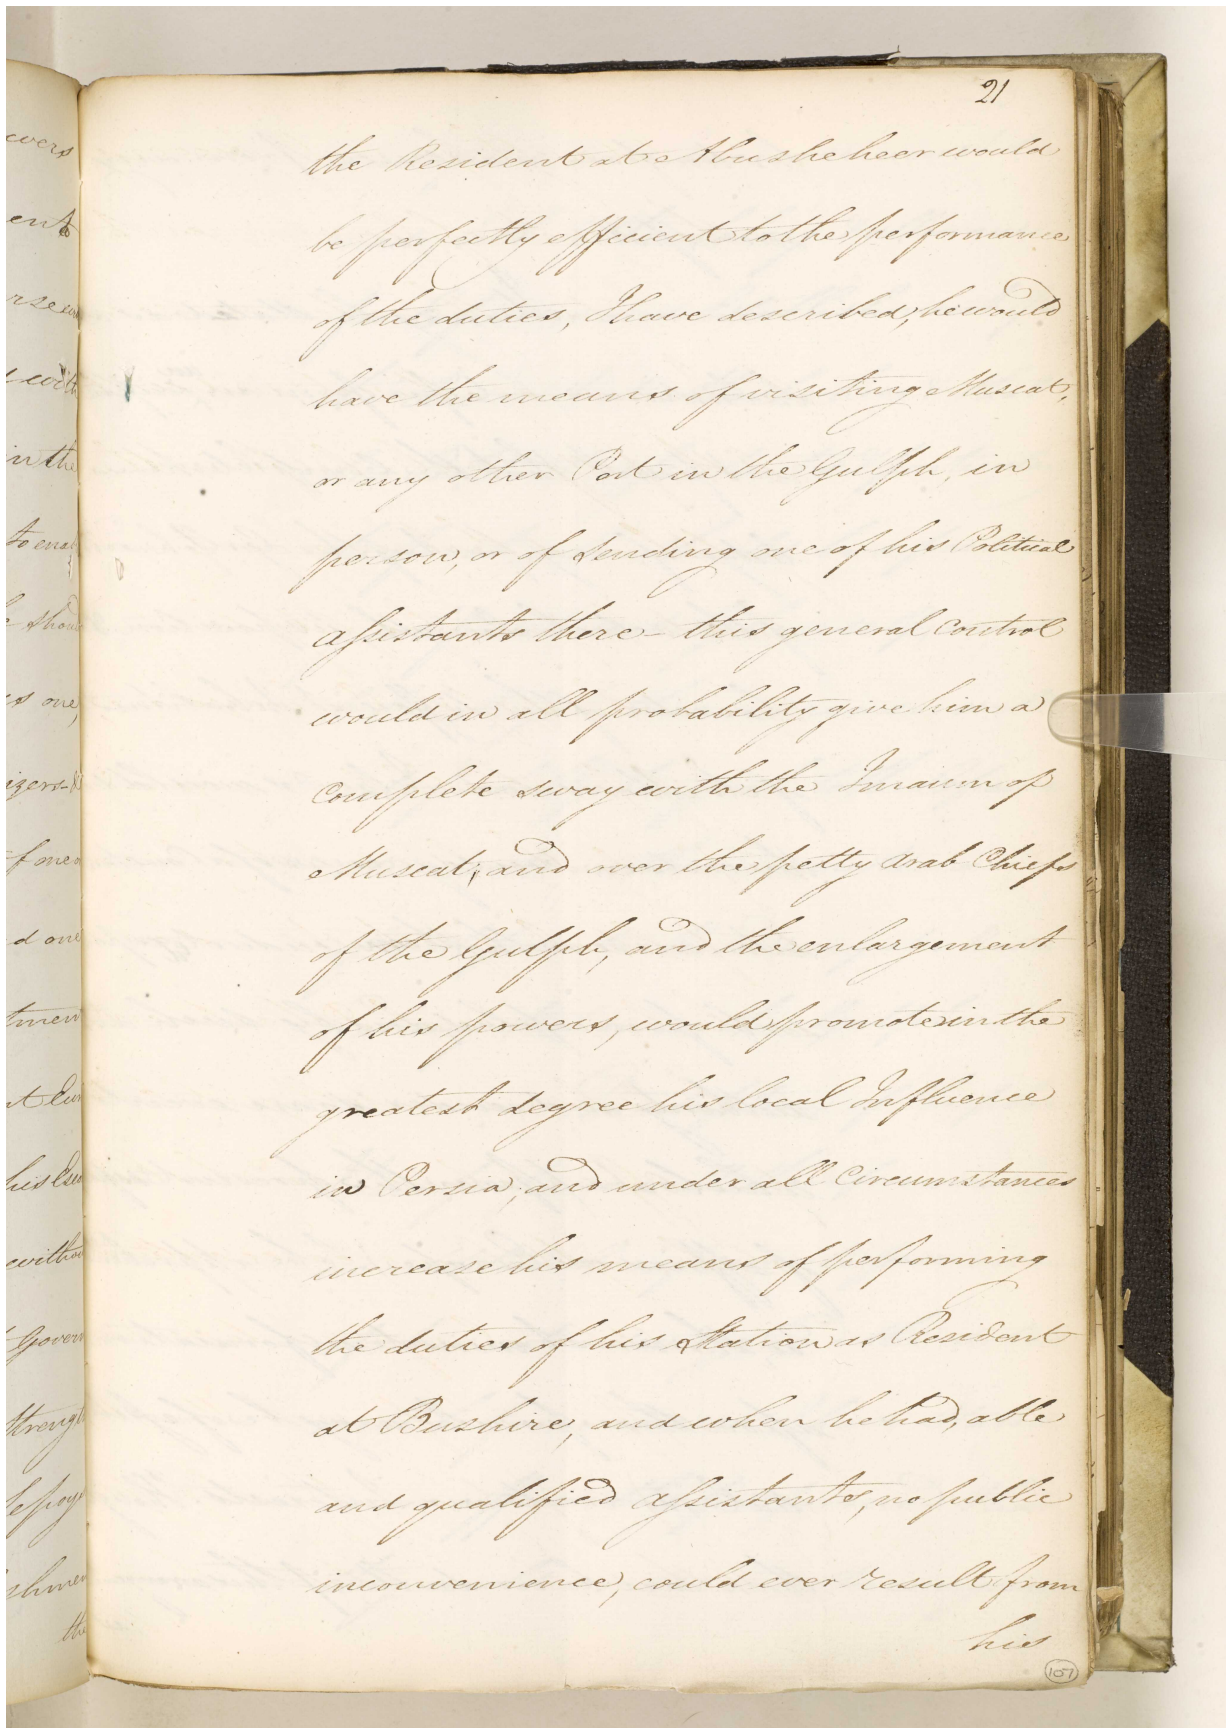 21
the Resident at Abusheheer would
be perfectly efficient to the performance
of the duties, I have described, he would
have the means of visiting Muscat,
or any other Port in the Gulph, in
person, or of sending one of his Political
assistants there - this general control
would in all probability give him a
complete sway with the Imaum of
Muscat; and over the petty Arab Chiefs
of the Gulph, and the enlargement
of his powers, would promote in the
greatest degree his local Influence
in Persia; and under all Circumstances
increase his means of performing
the duties of his Station as Resident
at Bushire, and when he had, able
and qualified assistants, no public
inconvenience, could ever result from
his
107